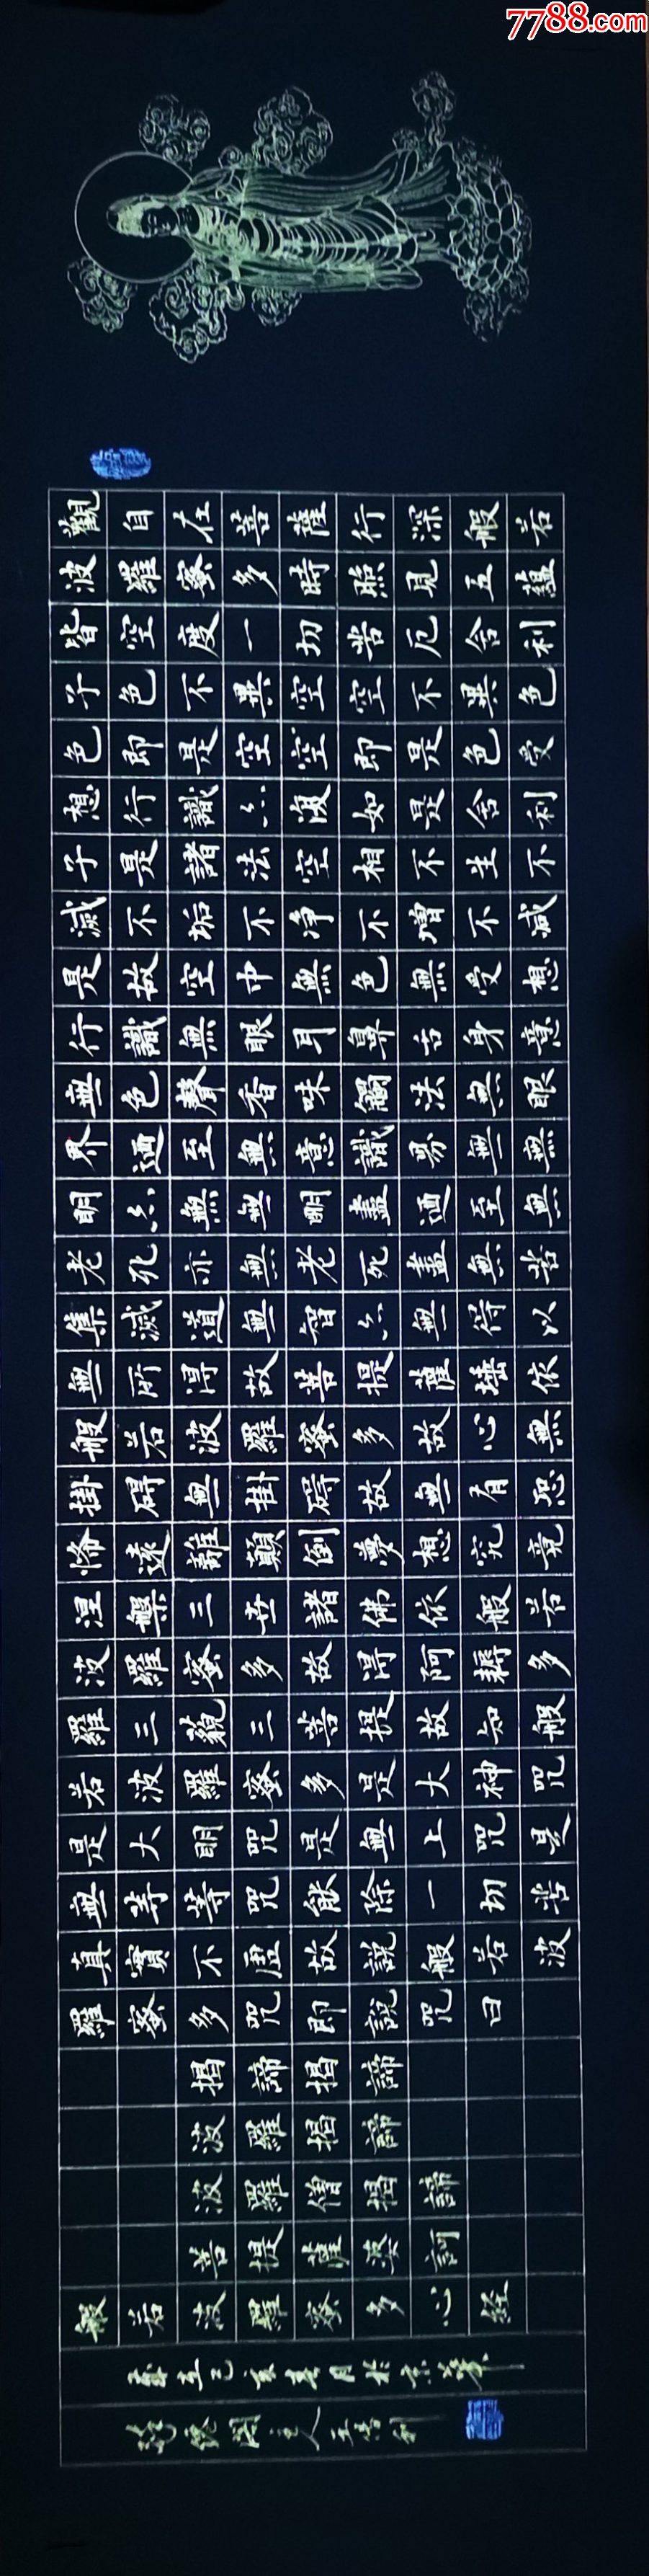 7788.com
觀自在菩薩行深般若
波羅蜜多時照見五蘊
皆空度一切苦厄舍利
子色不異空空不異色
色即是空空即是色受
想行識亦復如是舍利
子是諸法空相不生不
滅不垢不淨不增不減
是故空中無色無受想
行識無眼耳鼻舌身意
無色聲香味觸法無眼
界迺至無意識界無無
明亦無無明盡迺至無
老死亦無老死盡無苦
集滅道無智亦無得以
無所得故菩提薩埵依
般若波羅蜜多故心無
掛碍無掛碍故無有恐
怖遠離顛倒夢想究竟
涅槃三世諸佛依般若
波羅蜜多故得阿耨多
羅三藐三菩提故知般
若波羅蜜多是大神咒
是大明咒是無上咒是
無等等咒能除一切苦
真實不虛故說般若波
羅蜜多咒即說咒曰
揭諦揭諦
波羅揭諦
波羅僧揭諦
菩提薩婆訶
般若波羅蜜多心經
己亥夏月於京華
主人王